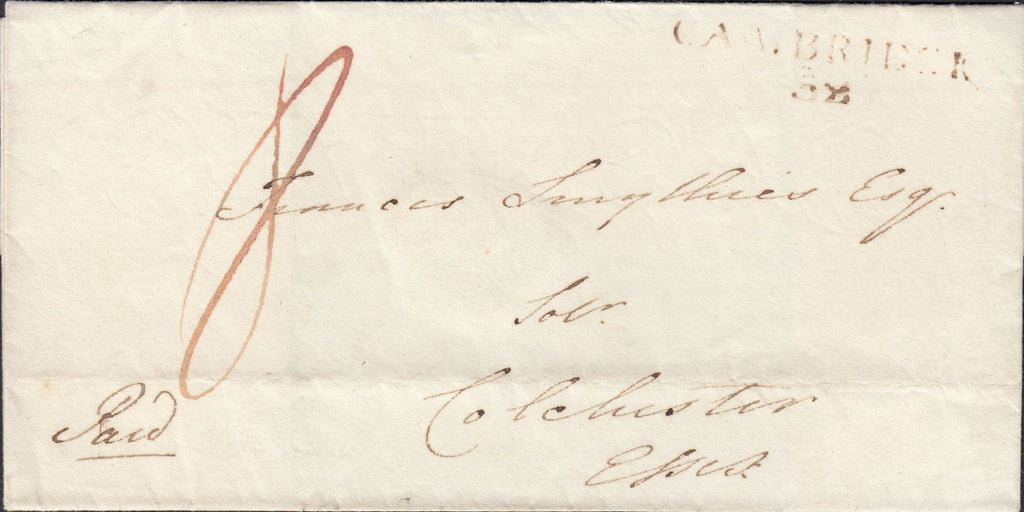 CAMBRIDGE
52
8
Francis Smythies Esqr.
Solr.
Colchester
Essex
Paid